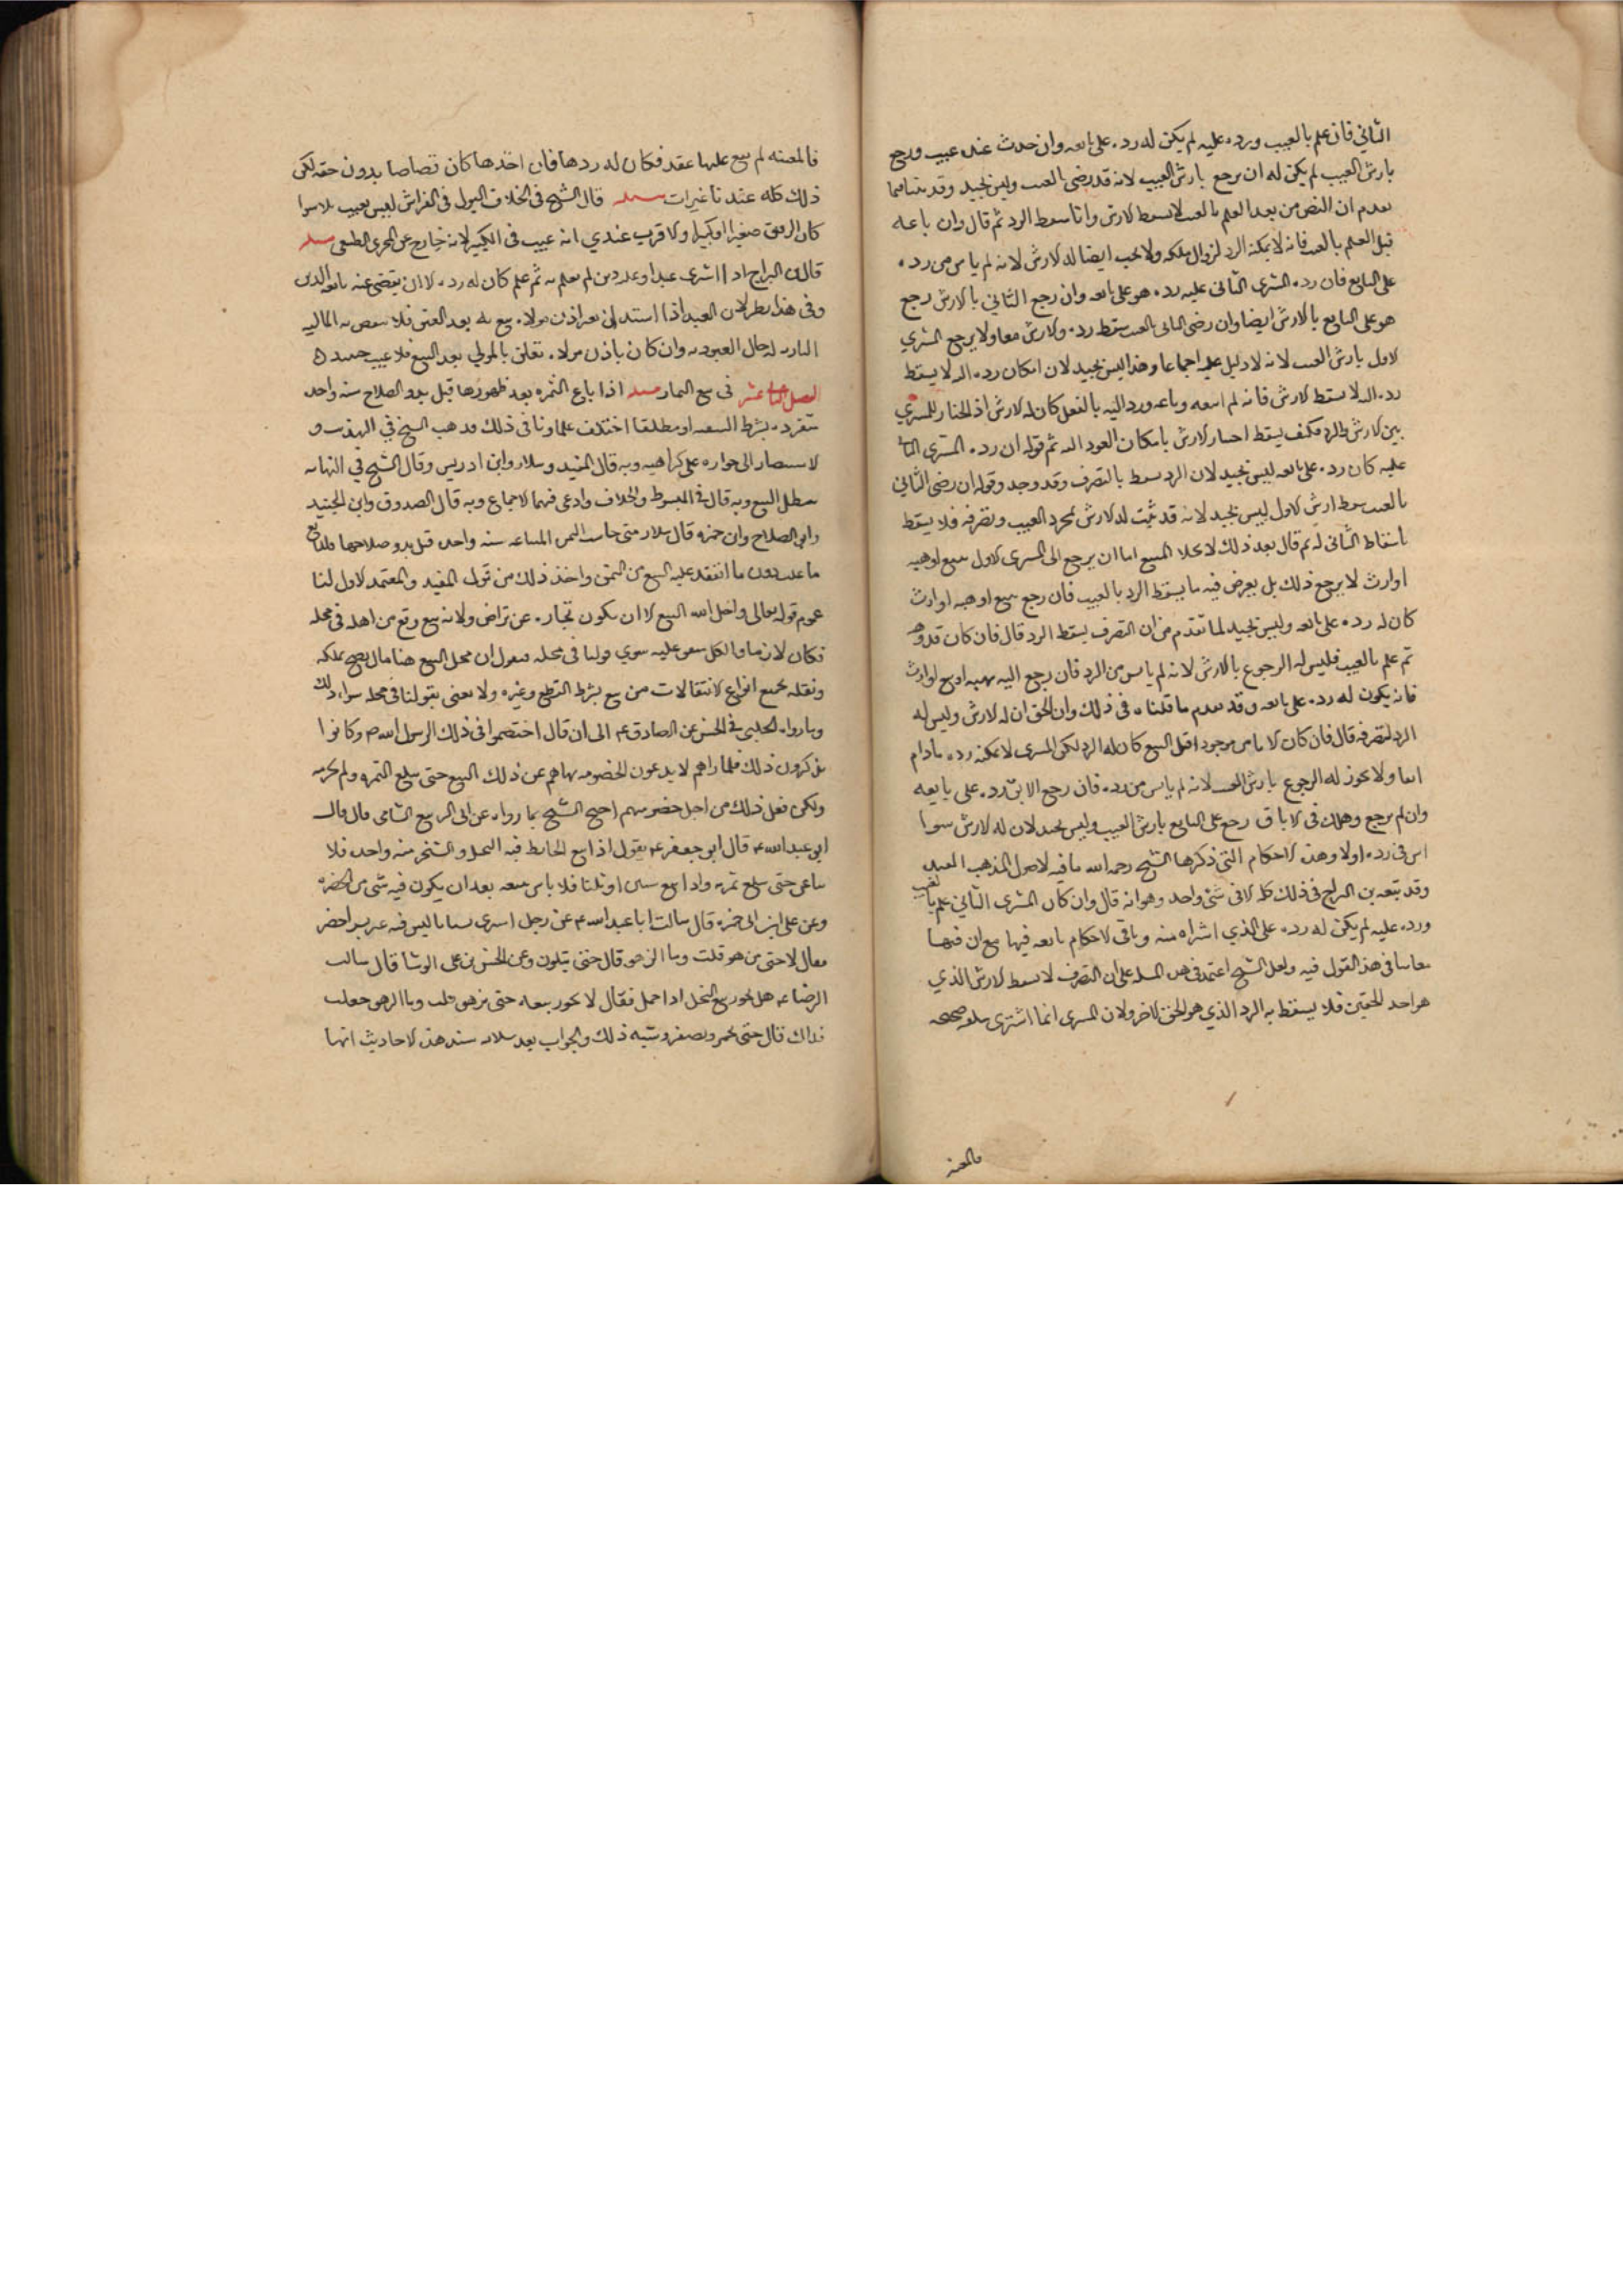 الثاني فان علم بالعيب ورده عليه لم يكن له رده على بائعه وان حدث عنده عيب ورجع
بارش العيب لم يكن له ان يرجع بارش العيب لانه قد رضى بالعيب وليس بجيد وقد بينا فيما
تقدم ان التصرف بعد العلم بالعيب لا يسقط الارش وانما يسقط الرد ثم قال وان باعه
قبل العلم بالعيب فانه لا يمكنه الرد لزوال ملكه ولا يجب ايضا له الارش لانه لم يأس من رده
على البايع فان رده المشترى الثانى عليه رده هو على بائعه وان رجع الثاني بالارش رجع
هو على البايع بالارش ايضا وان رضى الثانى بالعيب سقط رده والارش معا ولا يرجع المشتري
الاول بارش العيب لانه لا دليل عليه اجماعا وهذا ليس بجيد لان امكان رده اليه لا يسقط
رده اليه لا يسقط الارش فانه لم ابيعه وباعه ورد اليه بالفعل كان له الارش اذ الخيار للمشتري
بين الارش والرد فكيف يسقط اختيار الارش بامكان العود اليه ثم قوله ان رده المشترى الثانى
عليه كان رده على بائعه ليس بجيد لان الرد يسقط بالتصرف وقد وجد وقوله ان رضى الثاني
بالعيب سقط ارش الاول ليس بجيد لانه قد ثبت له الارش بمجرد العيب وتصرفه فلا يسقط
باسقاط الثانى له ثم قال بعد ذلك لا يخلا المبيع اما ان يرجع الى المشترى الاول ببيع او هبه
او ارث لا يرجع ذلك بل يعرض فيه ما يسقط الرد بالعيب فان رجع ببيع او هبه او ارث
كان له رده على بائعه وليس بجيد لما تقدم من ان التصرف يسقط الرد قال فان كان قد وهبه
ثم علم بالعيب فليس له الرجوع بالارش لانه لم يأس من الرد فان رجع اليه بهبه او بيع او ارث
فانه يكون له رده على بائعه وقد تقدم ما قلناه فى ذلك وان الحق ان له الارش وليس له
الرد لتصرفه قال فان كان الاباق موجودا قبل البيع كان له الرد لكن المشترى لا يمكنه رده ما دام
ابقا ولا يجوز له الرجوع بارش العيب لانه لم يأس من رده فان رجع الابق رده على بايعه
وان لم يرجع وهلك فى الاباق رجع على البايع بارش العيب وليس بجيد لان له الارش سواء
ايس فى رده اولا وهذه الاحكام التي ذكرها الشيخ رحمه الله منافيه لاصول المذهب
وقد تبعه بن البراج فى ذلك كله الا فى شئ واحد وهو انه قال وان كان المشترى الثاني علم بالعيب
ورده عليه لم يكن له رده على الذي اشتراه منه وباقى الاحكام تابعه فيها مع ان فيها
ما بينا فى هذا القول فيه ولعل الشيخ اعتمد فى هذه المسئله على ان التصرف لا يسقط الارش الذي
هو احد الحقين فلا يسقط به الرد الذي هو الحق الاخر ولان المشترى انما اشترى سلعه صحيحه
فالمعيبه لم يقع عليها عقد فكان له ردها فان اخذها كان قصاصا بدون حقه لكن
ذلك كله عندنا غير ات مسئله قال الشيخ فى الخلاف البول فى الفراش ليس بعيب سوا
كان الرقيق صغيرا او كبيرا والاقرب عندي انه عيب فى الكبير لانه خارج عن المجرى الطبيعى مسئله
قال بن البراج اذا اشترى عبدا وعليه دين لم يعلم به ثم علم كان له رده الا ان يقضى عنه بائعه الدين
وفى هذا نظر لان العبد اذا استدان بغير اذن مولاه بيع به بعد العتق فلا ينقص به الماليه
الثابته له حال العبوديه وان كان باذن مولاه تعلق بالمولي بعد البيع فلا عيب حينئذ
الفصل الثانى عشر فى بيع الثمار مسئله اذا باع الثمره بعد ظهورها قبل بدو الصلاح سنه واحده
منفرده بشرط التبقيه او مطلقا اختلف علماونا فى ذلك فذهب الشيخ في التهذيب و
الاستبصار الى جوازه على كراهيه وبه قال المفيد وسلار وابن ادريس وقال الشيخ في النهايه
يبطل البيع وبه قال فى المبسوط والخلاف وادعى فيهما الاجماع وبه قال الصدوق وابن الجنيد
وابى الصلاح وابن حمزه قال سلار متى خاست الثمره المبتاعه سنه واحده قبل بدو صلاحها فللبايع
ما غلت دون ما انعقد عليه البيع من الثمن واخذ ذلك من قول المفيد والمعتمد الاول لنا
عموم قوله تعالى واحل الله البيع الا ان يكون تجاره عن تراض ولانه بيع وقع من اهله فى محله
فكان لازما والكل متفق عليه سوي قولنا فى محله فنقول ان محل البيع هنا مال يصح تملكه
ونقله بجميع انواع الانتقالات من بيع بشرط القطع وغيره ولا نعنى بقولنا فى محله سواء ذلك
وما رواه الحلبي فى الحسن عن الصادق ع الى ان قال اختصموا فى ذلك الى رسول الله ص وكانوا
يذكرون ذلك فلما راهم لا يدعون الخصومه نهاهم عن ذلك البيع حتى يبلغ الثمره ولم يحرمه
ولكن فعل ذلك من اجل خصومتهم احتج الشيخ بما رواه عن ابى الربيع الشامى قال قال
ابو عبد الله ع قال ابو جعفر ع يقول اذا بيع الحايط فيه النخل والشجر سنه واحده فلا
يباعن حتى يبلغ ثمرته واذا بيع سنين او ثلثا فلا باس ببيعه بعد ان يكون فيه شئ من الخضره
وعن على ابن ابى حمزه قال سالت ابا عبد الله ع عن رجل اشترى بستانا ليس فيه غير بسر اخضر
فقال لا حتى يزهو قلت وما الزهو قال حتى يتلون وعن الحسن بن على الوشا قال سالت
الرضا ع هل يجوز بيع النخل اذا حمل فقال لا يجوز بيعه حتى يزهو قلت وما الزهو جعلت
فداك قال حتى يحمر ويصفر وشبه ذلك والجواب بعد سلامه سند هذه الاحاديث انها
فالمعيبه